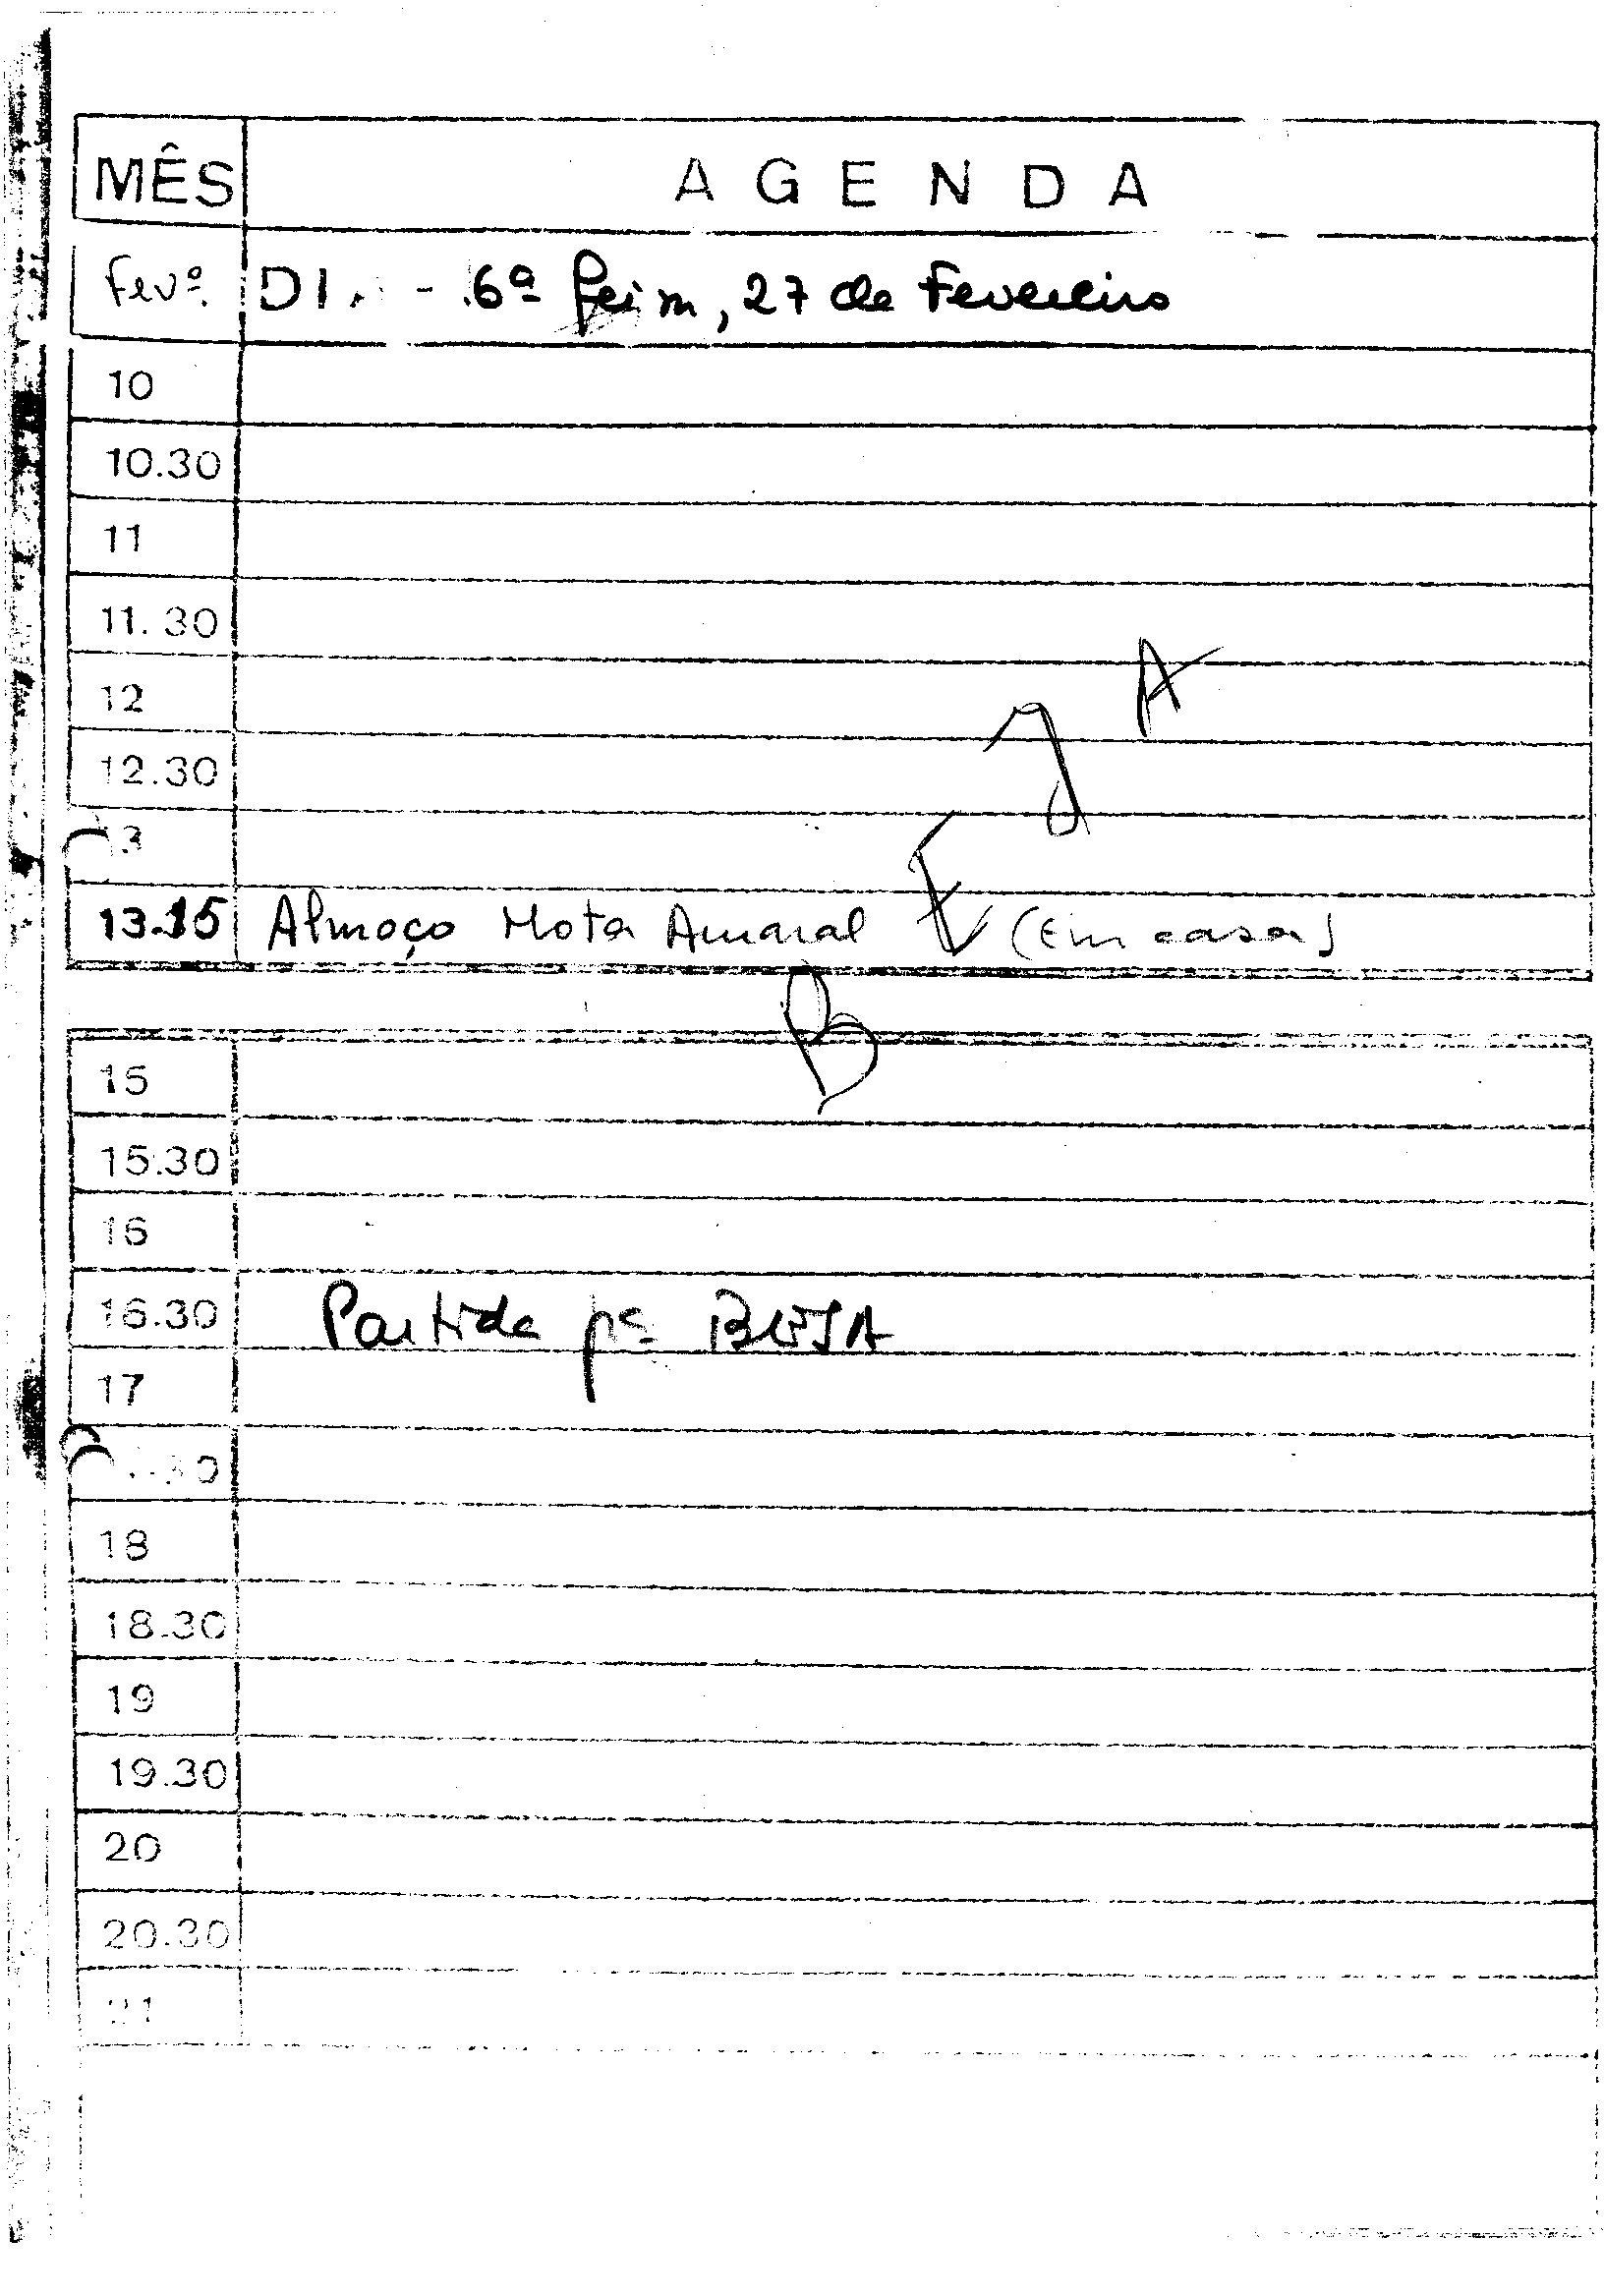 MÊS A G E N D A
Fevº. DI. - 6ª feira, 27 de Fevereiro
10
10.30
11
11.30
12
12.30
13
13.15 Almoço Mota Amaral (Em casa)
BEJA
15
15.30
16
16.30 Partida pª BEJA
17
18
18.30
19
19.30
20
20.30
21